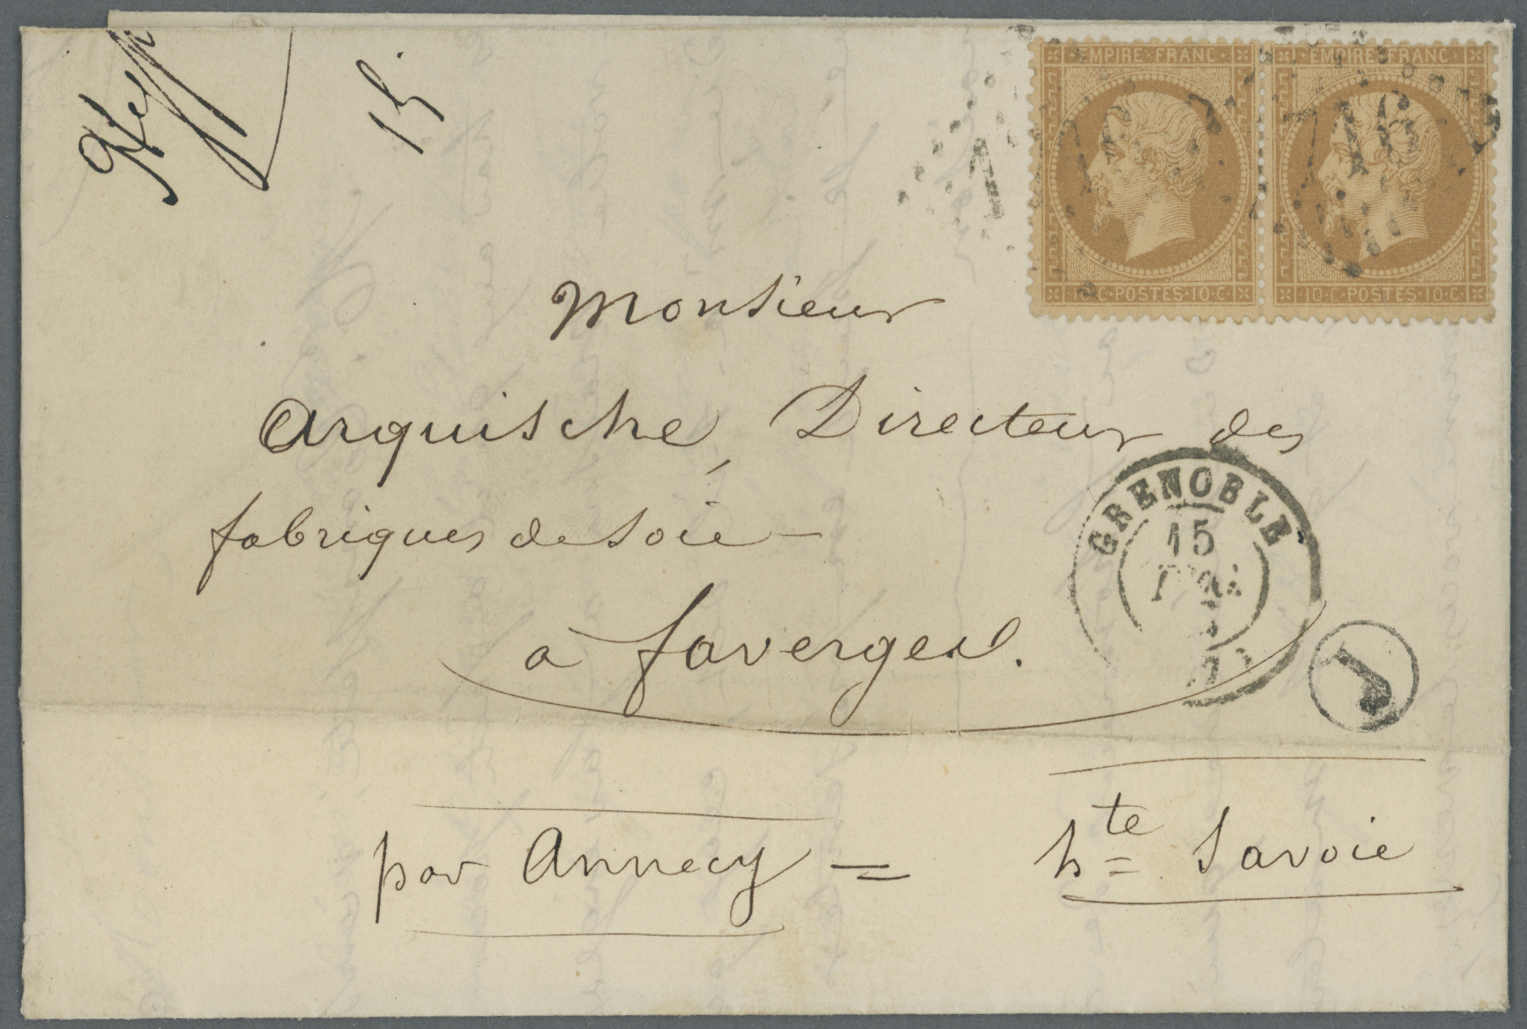 15
EMPIRE FRANC
EMPIRE FRANC
1716
1716
C·POSTES·10·C·
10·C·POSTES·10·C·
Monsieur
Arquische, Directeur des
fabriques de Soie
à faverges.
GRENOBLE
15
J
par Annecy =
hte Savoie